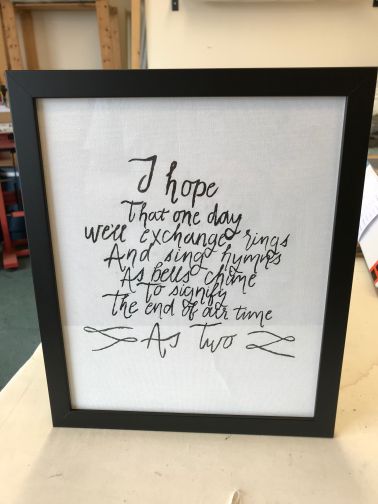 I hope
That one day
we'll exchange rings
And sing hymns
As bells chime
To signify
The end of our time
As Two